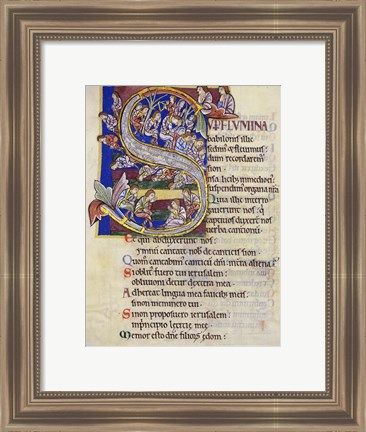 SVP FLVMINA
babilonis illic
sedim' & fleuimus:
dum recordarem
sion
In salicib; in medio ei':
suspendim' organa nr̄a
Quia illic interro
gauerunt nos: q̄
captiuos duxer̄t nos
uerba cantionū
Et qui abduxerunt nos:
ymnū cantate nob̄ de canticis sion
Quom̄ cantabim' canticū dn̄i: in tr̄a aliena
Si oblit' fuero tui ierusalem:
obliuioni det' dextera mea
Adhereat lingua mea faucib; meis:
si non meminero tui
Si non proposuero ierusalem:
in principio leticie mee
Memor esto dn̄e filiorū edom: